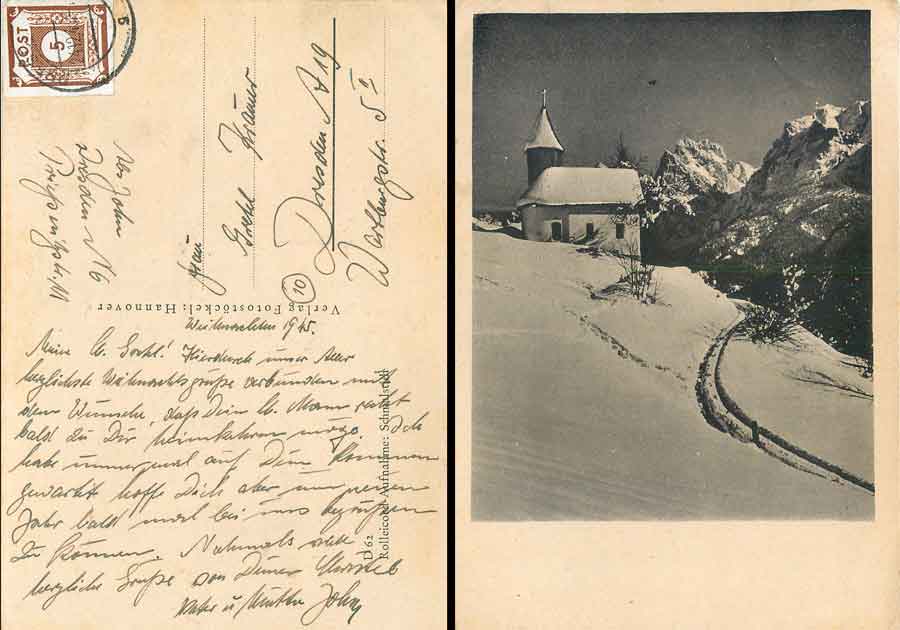 POST
5
Abs. John
Dresden A 16
Frau
Gretel Krämer
Dresden A 19
Wartburgstr. 5 II
10
Verlag Fotostöckel: Hannover
Weihnachten 1945.
Meine lb. Gretel! Hierdurch unser Aller
herzlichste Weihnachtsgrüße verbunden mit
dem Wunsche, daß Dein lb. Mann recht
bald zu Dir heimkehren möge. Ich
habe immer mal auf Dein Kommen
gewartet hoffe Dich aber im neuen
Jahr bald mal bei uns begrüßen
zu können. Nochmals recht
herzliche Grüße von Deiner
Vater u. Mutter John
D 62
Rolleicord-Aufnahme: